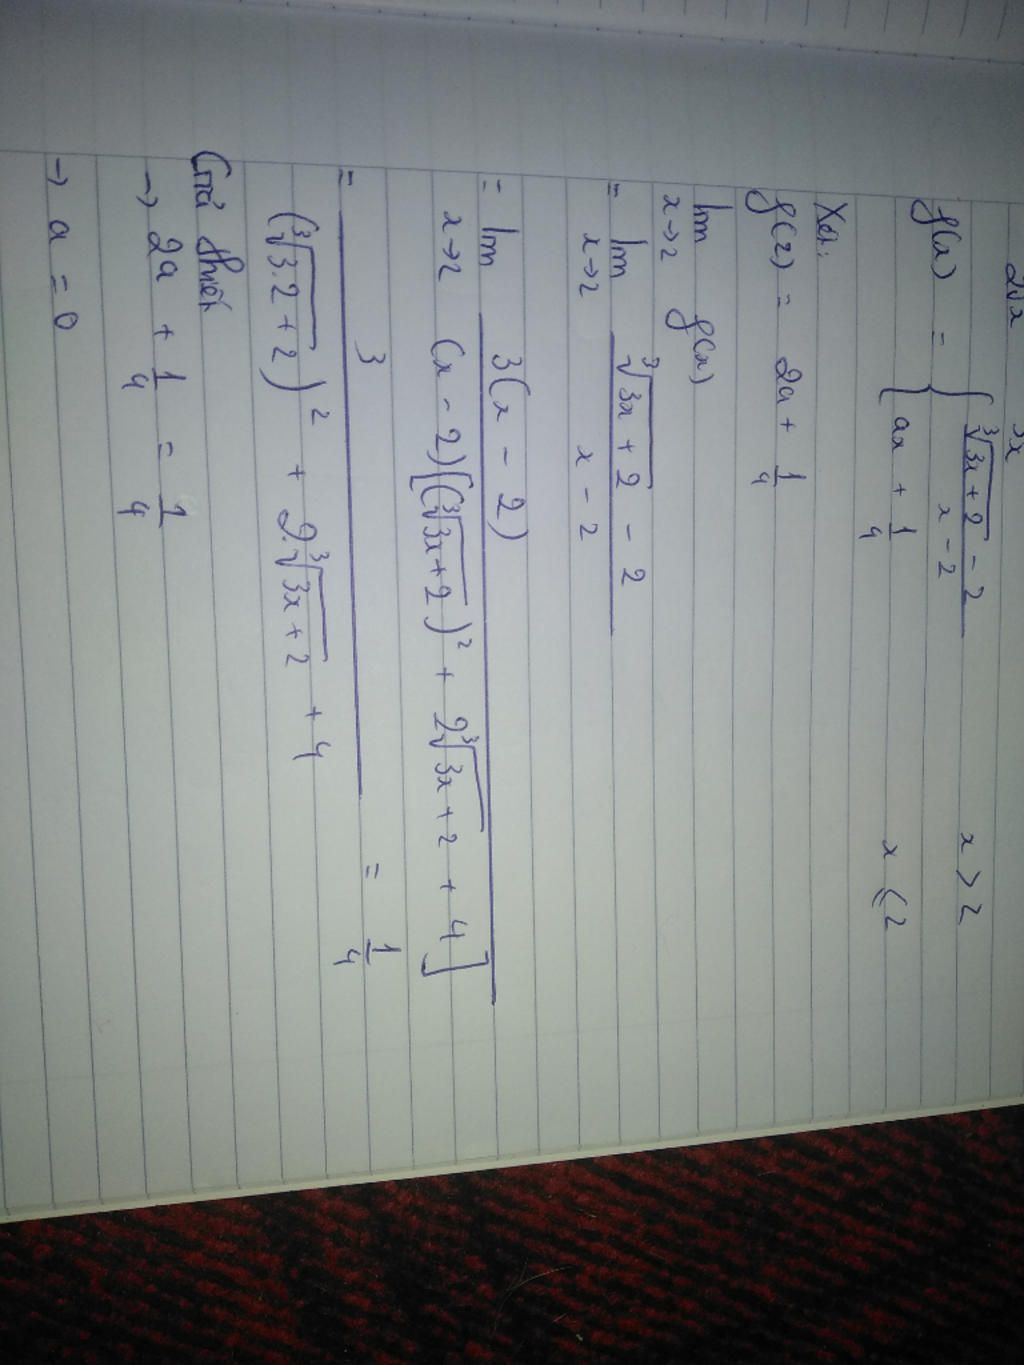 2√x 3x
f(x) = { (∛(3x + 2) - 2)/(x - 2) x > 2
{ ax + 1/4 x ≤ 2
Xét:
f(2) = 2a + 1/4
lim_{x→2} f(x)
= lim_{x→2} (∛(3x + 2) - 2)/(x - 2)
= lim_{x→2} 3(x - 2)/((x - 2)[(∛(3x + 2))² + 2∛(3x + 2) + 4])
= 3/((∛(3.2 + 2))² + 2.∛(3x + 2) + 4) = 1/4
Giả thiết
→ 2a + 1/4 = 1/4
→ a = 0